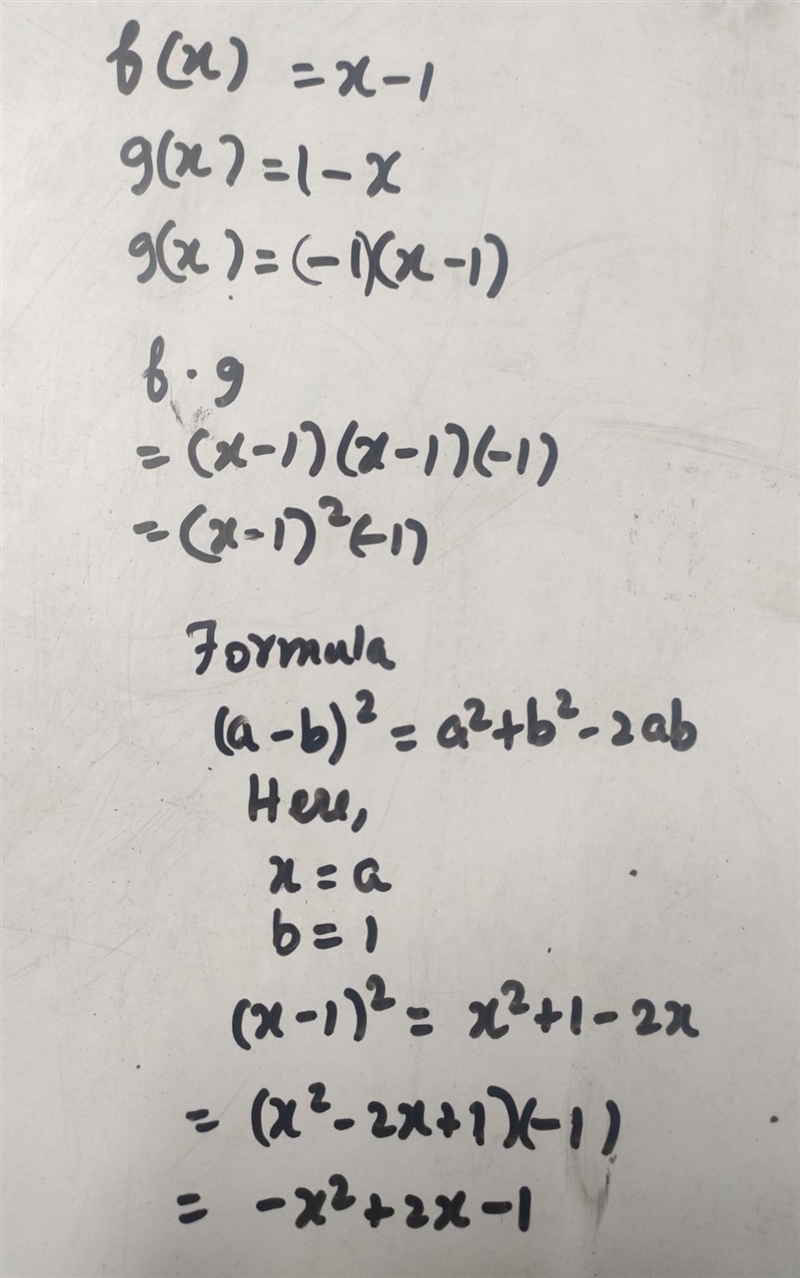 f(x) = x - 1
g(x) = 1 - x
g(x) = (-1)(x - 1)
f · g
= (x-1)(x-1)(-1)
= (x-1)²(-1)
Formula
(a-b)² = a²+b²-2ab
Here,
x = a
b = 1
(x-1)² = x²+1-2x
= (x²-2x+1)(-1)
= -x²+2x-1